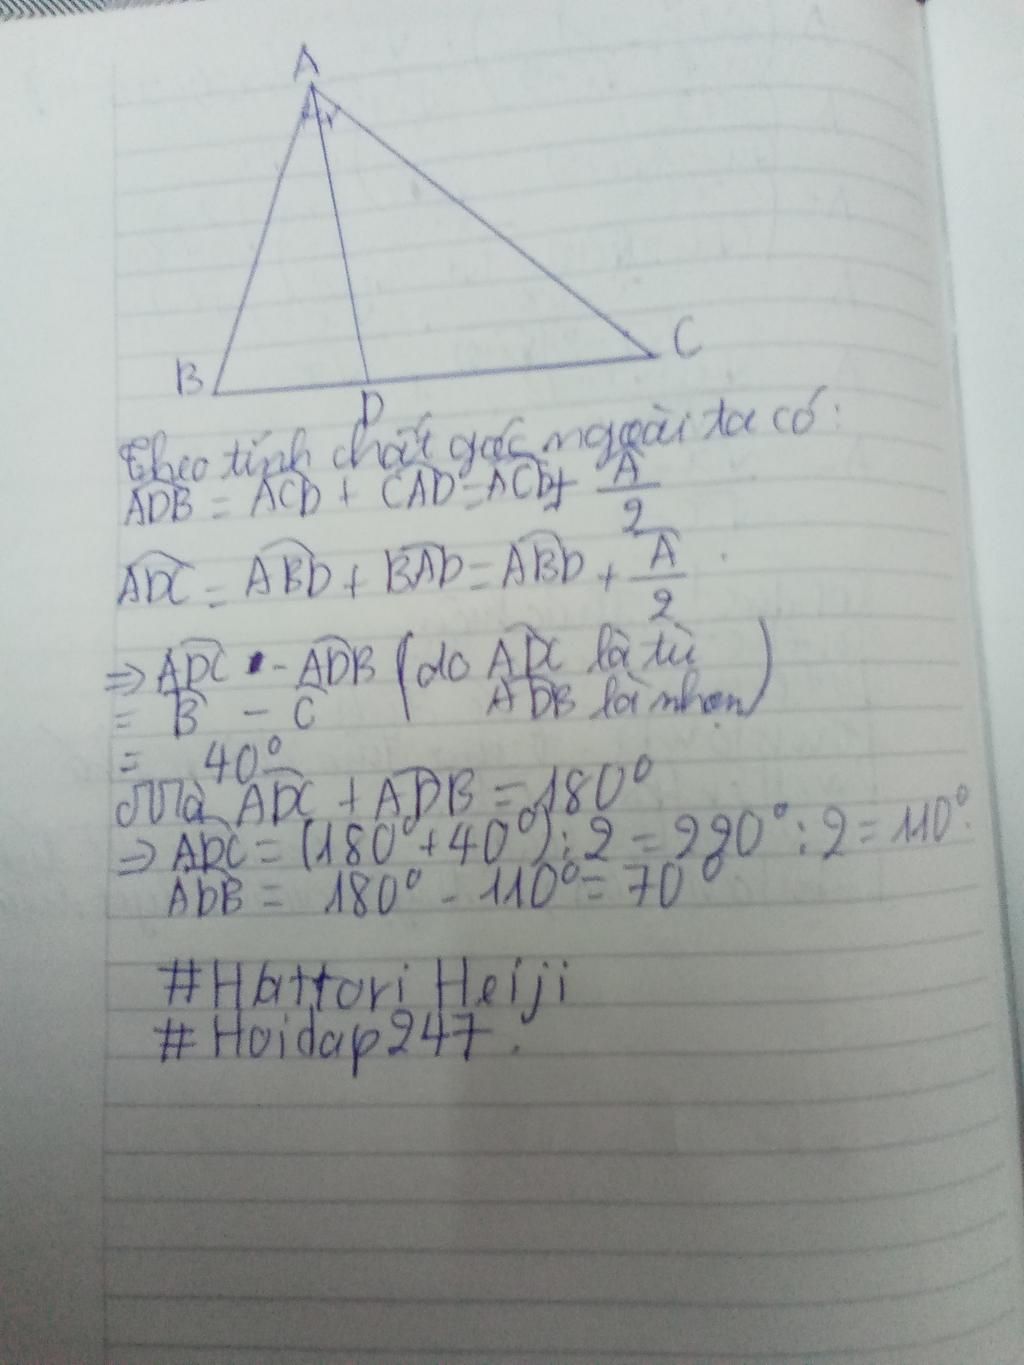 A
B
C
D
Theo tính chất góc ngoài ta có:
ADB = ACD + CAD = ACD + A/2
ADC = ABD + BAD = ABD + A/2
=> ADC - ADB (do ADC là tù
= B - C ADB là nhọn)
= 40°
Mà ADC + ADB = 180°
=> ADC = (180° + 40°) : 2 = 220° : 2 = 110°.
ADB = 180° - 110° = 70°
#Hattori Heiji
#Hoidap247.